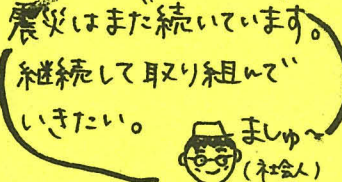 震災はまだ続いています。
継続して取り組んで
いきたい。
ましゅ〜
(社会人)